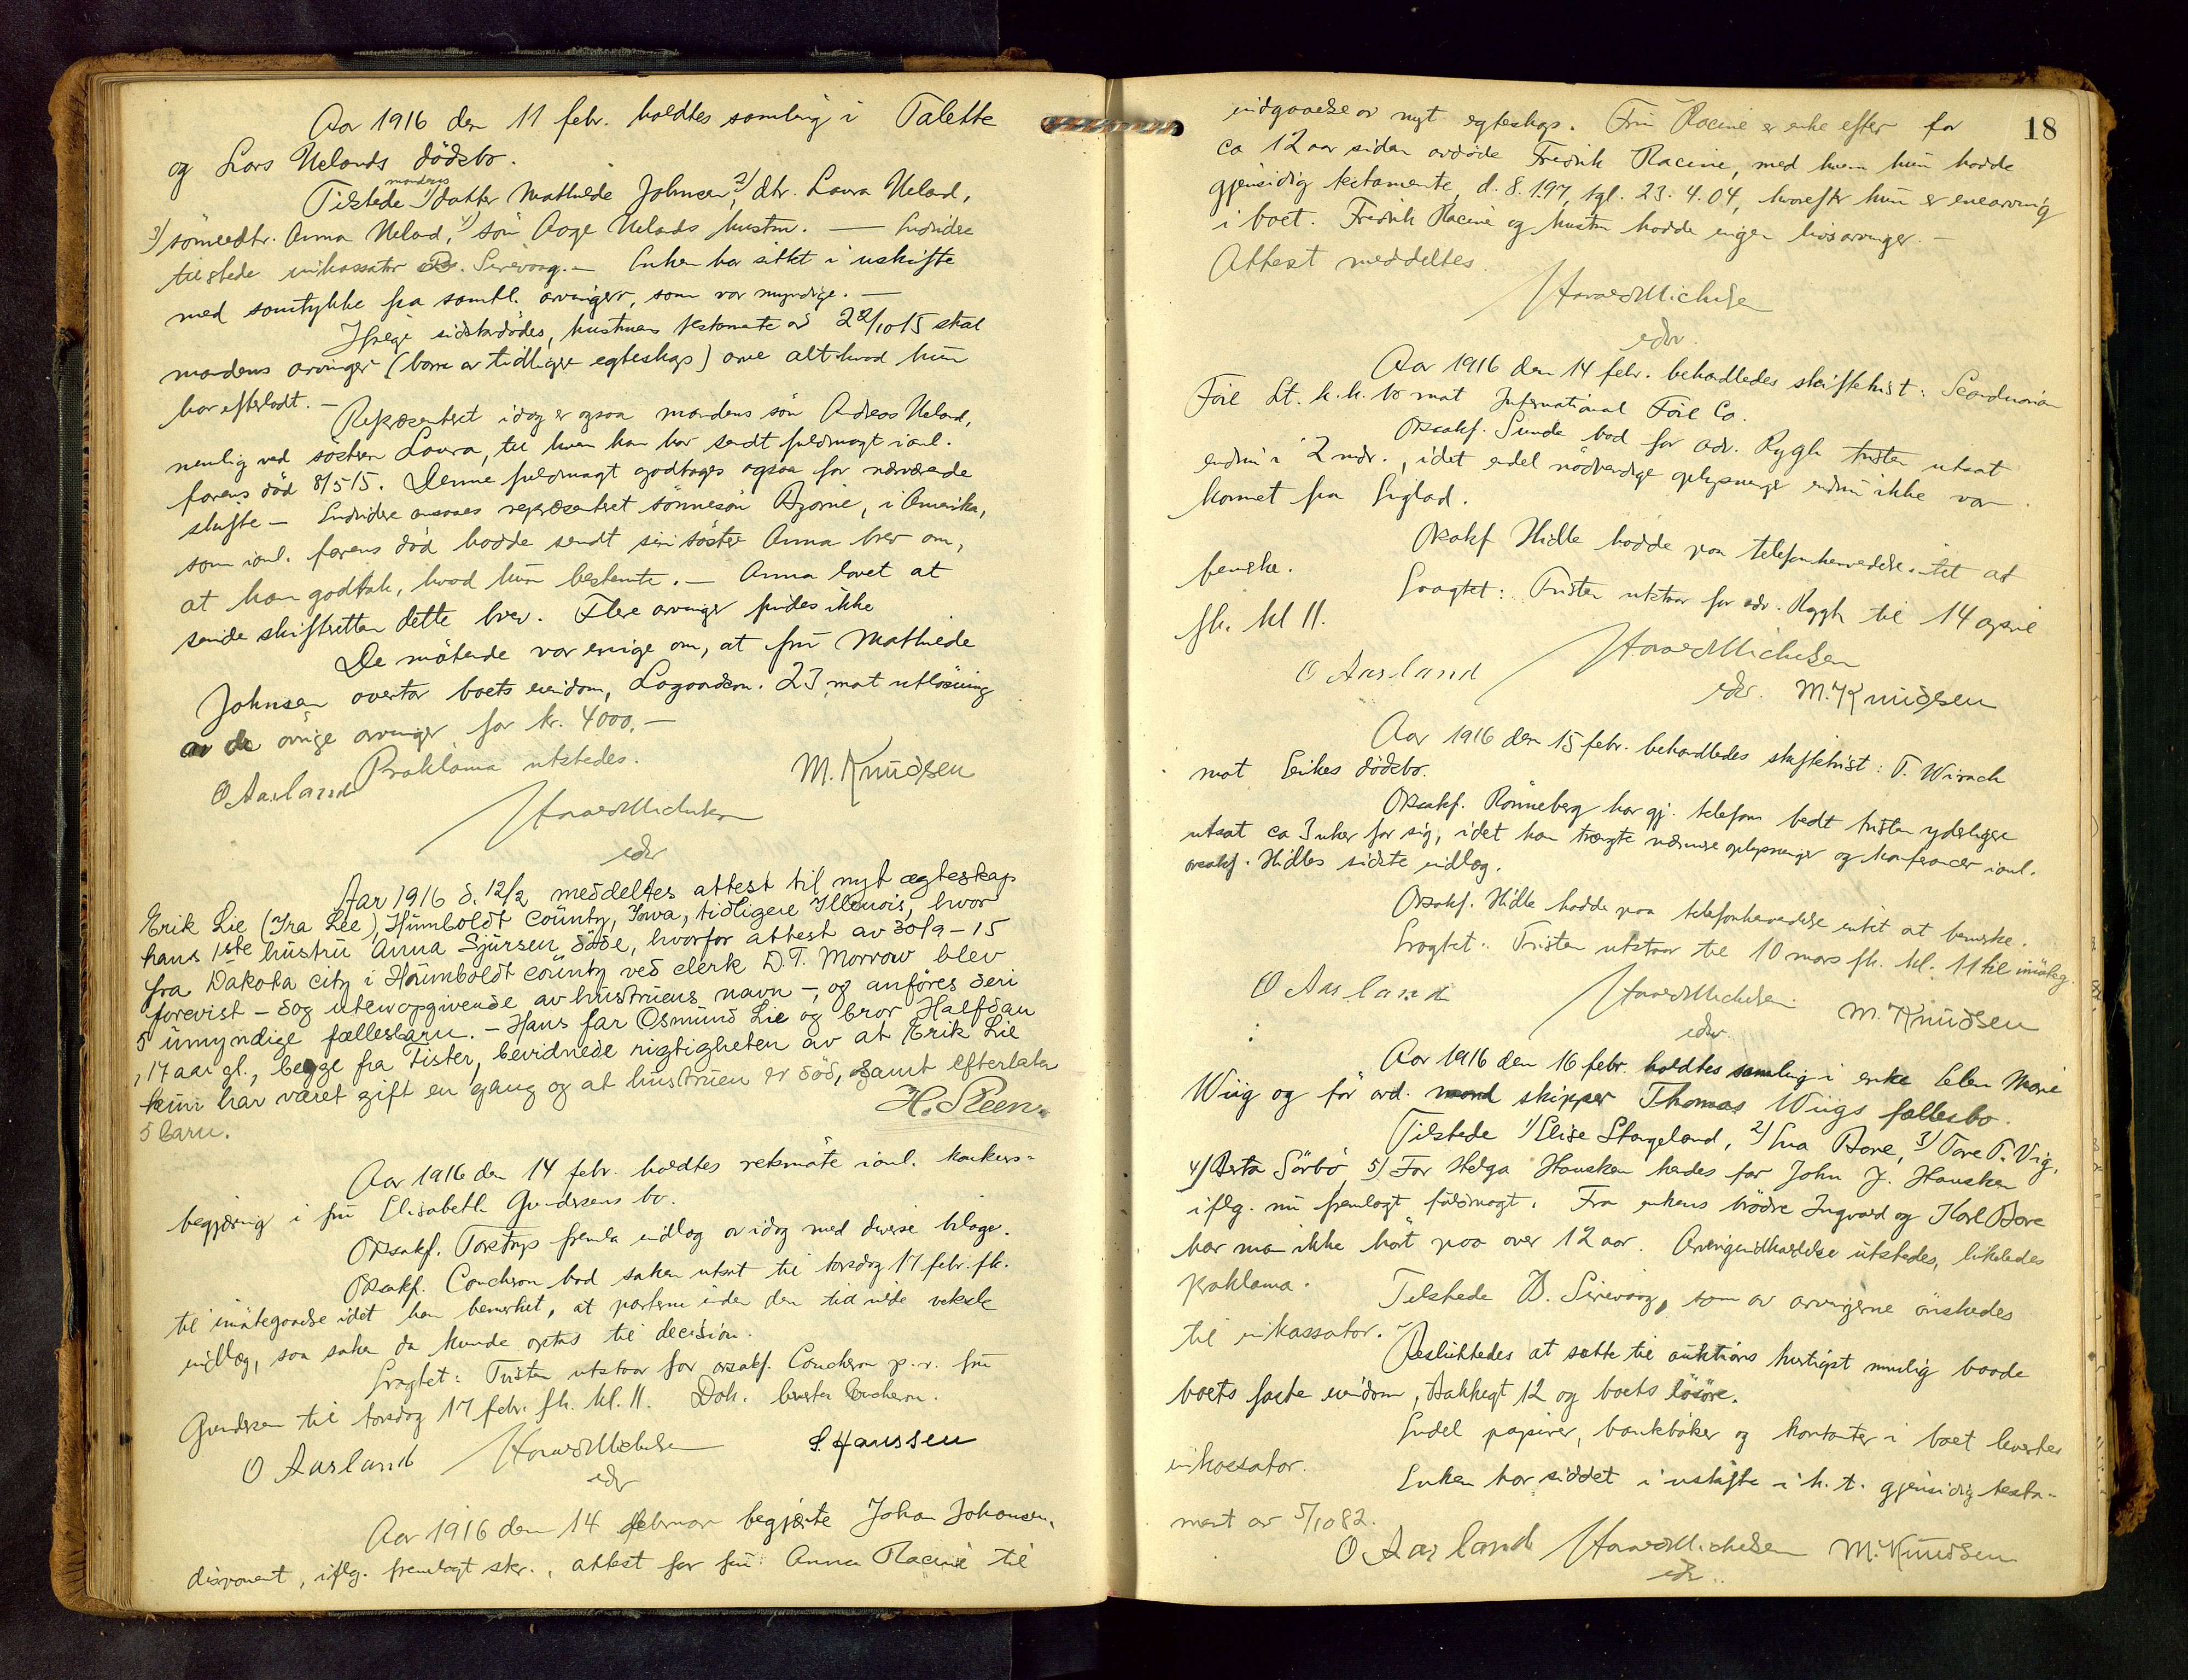 Aar 1916 den 11 febr. holdtes samling i Talette
og Lars Uelands dödsbo.
Tilstede 1) mandens datter Mathilde Johnsen, 2) dtr. Laura Ueland,
3) sönnedtr. Anna Ueland, 4) sön Aage Uelands hustru. — Endvidere
tilstede inkassator B. Sirevaag. — Enken har sittet i uskifte
med samtykke fra samtl. arvinger, som var myndige. —
Ifølge sidstavdödes, hustruens testamente av 22/10 15 skal
mandens arvinger (barn av tidligere egteskap) arve alt hvad hun
har efterladt. —
Repræsentert idag er ogsaa mandens sön Andreas Ueland,
nemlig ved søsteren Laura, til hvem han har sendt fuldmagt i anl.
farens död 8/5 15. Denne fuldmagt godtages ogsaa for nærværende
skifte — Endvidere ansaaes repræsentert sönnesön Bjarne, i Amerika,
som i anl. farens död hadde sendt sin søster Anna brev om,
at han godtok, hvad hun bestemte. — Anna lovet at
sende skifteretten dette brev. Flere arvinger findes ikke
De mötende var enige om, at fru Mathilde
Johnsen overtar boets eiendom, Lagaardsvn. 23, mot utlösning
av de övrige arvinger for kr. 4000,—
Proklama utstedes.
O Aarland M. Knudsen
Harald Michelsen
edsv
Aar 1916 d. 12/2 meddeltes attest til nyt ægteskap
Erik Lie (Ira Lee), Humboldt county, Iowa, tidligere Illenois, hvor
hans 1ste hustru Anna Sjursen döde, hvorfor attest av 30/9 - 15
fra Dakota city i Humboldt county ved clerk D. T. Morrow blev
forevist - dog uten opgivende av hustruens navn -, og anföres deri
5 umyndige fællesbarn. - Hans far Osmund Lie og bror Halfdan
, 17 aar gl., begge fra Tister, bevidnede rigtigheten av at Erik Lie
kun har været gift en gang og at hustruen er död, samt efterlater
5 barn. H. Steen.
Aar 1916 den 14 febr. holdtes retsmöte i anl. konkurs-
begjæring i fru Elisabeth Gundersens bo.
Orsakf. Torstrup fremla indlæg av idag med diverse bilage.
Orsakf. Coucheron bad saken utsat til torsdag 17 febr. fk.
til imötegaaelse idet han bemerket, at parterne inden den tid vilde veksle
indlæg, saa saken da kunde optas til decision.
Fragtet: Fristen utstaar for orsakf. Coucheron p. v. fru
Gundersen til torsdag 17 febr. fk. kl. 11. Dok. levertes Coucheron.
O Aarland Harald Michelsen S. Hanssen
edsv
Aar 1916 den 14 februar begjærte Johan Johansen,
disponent, iflg. fremlagt skr., attest for fru Anna Racine til
18
indgaaelse av nyt egteskap. Fru Racine er enke efter for
ca 12 aar siden avdöde Fredrik Racine, med hvem hun hadde
gjensidig testamente, d. 8.1.97, tgl. 23.4.04, hvorefter hun er enearving
i boet. Fredrik Racine og hustru hadde ingen livsarvinger. —
Attest meddeltes.
Harald Michelsen
edsv.
Aar 1916 den 14 febr. behandledes skiftetvist: Scandinavian
Foil Lt. k.k. bo mot International Foil Co.
Orsakf. Sunde bad for adv. Rygh fristen utsat
endnu i 2 mdr., idet endel nödvendige oplysninger endnu ikke var
kommet fra England.
Orsakf Hidle hadde paa telefonhenvendelse intet at
bemerke.
Fragtet: Fristen utstaar for adv. Rygh til 14 april
fk. kl 11.
O Aarland Harald Michelsen
edsv. M. Knudsen
Aar 1916 den 15 febr. behandledes skiftetvist: T. Wirach
mot Erikes dödsbo.
Orsakf. Rönneberg har gj. telefon bedt fristen yderligere
utsat ca 3 uker for sig, idet han trængte nærmere oplysninger og konferancer i anl.
orsakf. Hidles sidste indlæg.
Orsakf. Hidle hadde paa telefonhenvendelse intet at bemerke.
Fragtet: Fristen utstaar til 10 mars fk. kl. 11 til imöteg.
O Aarland Harald Michelsen M. Knudsen
edsv.
Aar 1916 den 16 febr. holdtes samling i enke Elen Marie
Wiig og för avd. mand skipper Thomas Wiigs fællesbo.
Tilstede 1) Elise Stangeland, 2) Eva Bore, 3) Tore T. Vig,
4) Berta Sörbö, 5) For Helga Hausken hendes far John J. Hausken
iflg. nu fremlagt fuldmagt. Fra enkens brödre Ingvald og Karl Bore
har man ikke hört paa over 12 aar. Arvingeindkaldelse utstedes, likeledes
proklama.
Tilstede B. Sirevaag, som av arvingerne önskedes
til inkassator.
Besluttedes at sætte til auktions hurtigst mulig baade
boets faste eiendom, Bakkegt 12 og boets lösöre.
Endel papirer, bankböker og kontanter i boet levertes
inkassator.
Enken har siddet i uskifte i h. t. gjensidig testa-
ment av 5/10 82.
O Aarland Harald Michelsen M. Knudsen
edsv..